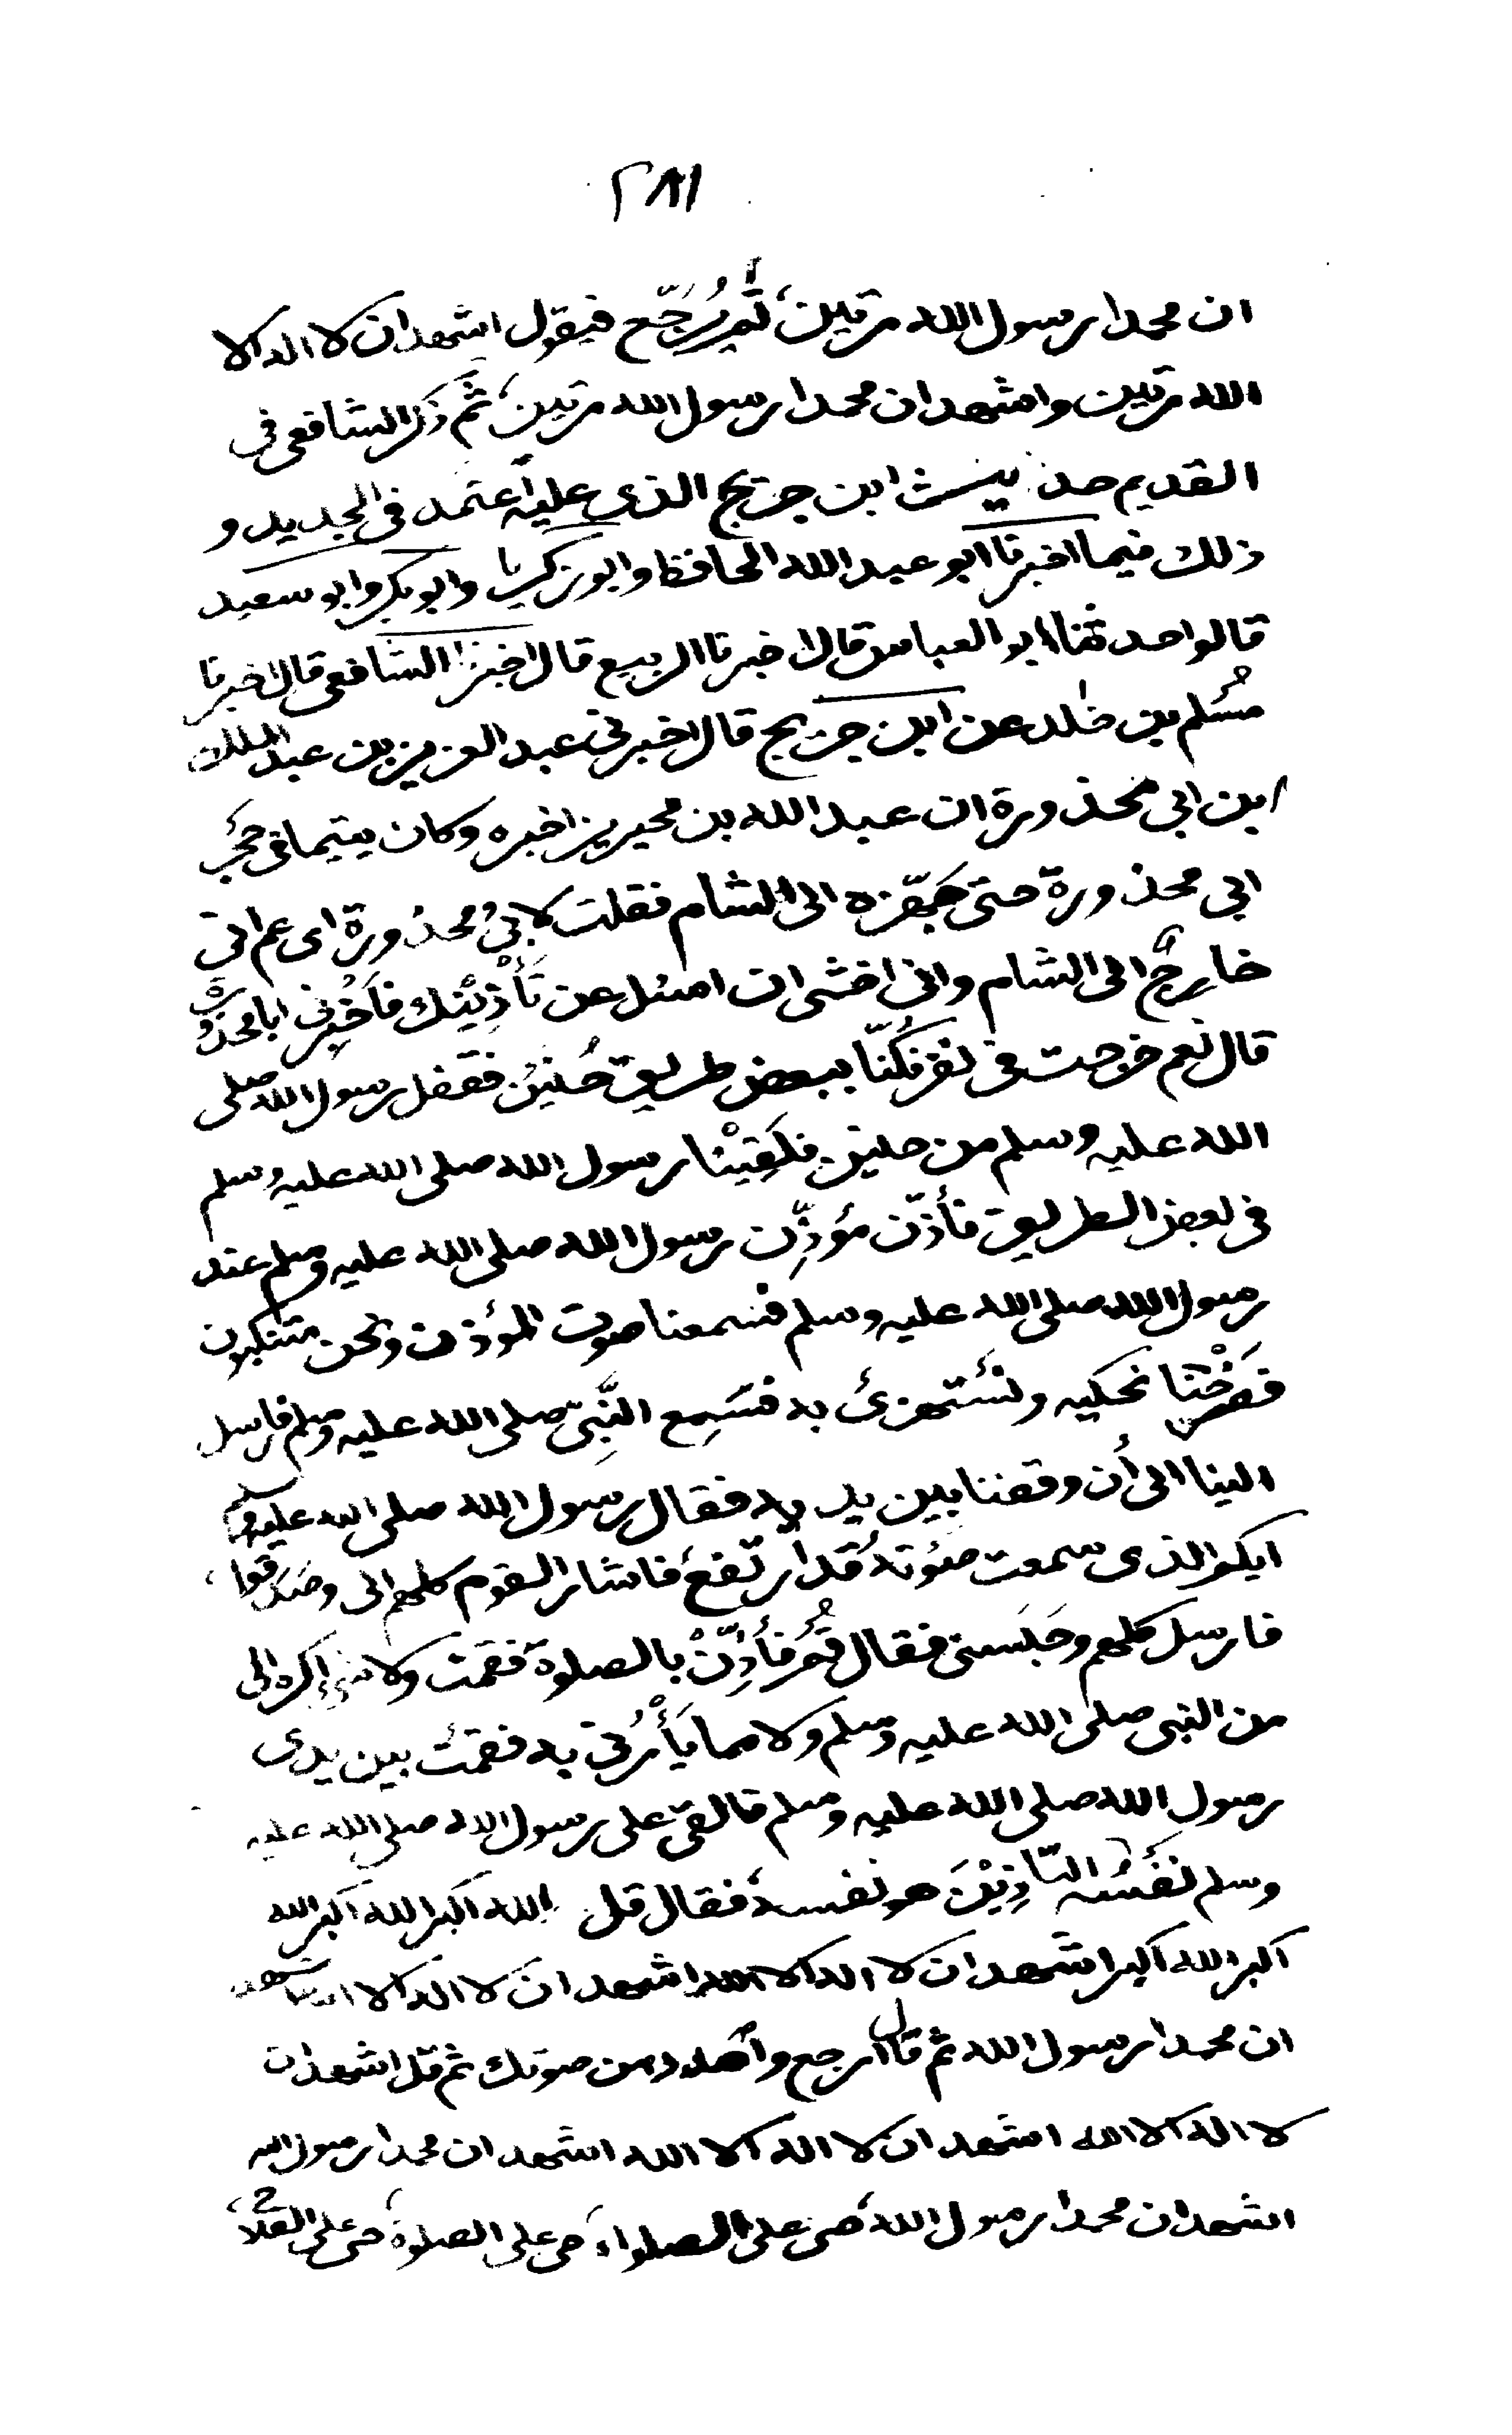 ٢٨١
ان محمدا رسول الله مرتين، ثم يُرَجّع فيقول اشهد ان لا اله الا
الله مرتين واشهد ان محمدا رسول الله مرتين، ثم ذكر الشافعى فى
القديم حديث ابن جريج الذى عليه اعتمد فى الجديد و
ذلك فيما اخبرنا ابو عبد الله الحافظ وابو زكريا وابو بكر وابو سعيد
قالوا حدثنا ابو العباس قال اخبرنا الربيع قال اخبرنا الشافعى قال اخبرنا
مُسْلم بن خٰلد عن ابن جريج قال اخبرنى عبد العزيز بن عبد الملك
ابن ابى محذورة ان عبد الله بن محيريز اخبره وكان يتيما فى حَجْر
ابى محذورة حتى جَهّزه الى الشام فقلت لابى محذورة اى عم انى
خارجٌ الى الشام وانى اخشى ان اسئل عن تَأْذِيْنك فأخْبِرنى ابا محذورة
قال نعم خرجت فى نفر فكُنّا ببعض طريق حُنَيْن فقفل رسول الله صلى
الله عليه وسلم من حنين فلَقِيْنا رسول الله صلى الله عليه وسلم
فى بعض الطريق فأذّن مؤذِّن رسول الله صلى الله عليه وسلم عند
رسول الله صلى الله عليه وسلم فسمعنا صوت المؤذن ونحن متنكبون
فصَرَخْنا نحكيه ونَسْتَهزئ به فسَمِع النَّبِىّ صلى الله عليه وسلم فارسل
الينا الى أن وقفنا بين يديه فقال رسول الله صلى الله عليه وسلم
ايكم الذى سمعت صَوْتَهُ قد ارتفعَ فاشار القوم كلهم الى وصَدَقوا،
فارسل كلهم وحَبَسَنى فقال قُمْ فأَذِّنْ بالصلوة فقمت ولا شئ اكره الى
من النبى صلى الله عليه وسلم ولا مما يَأْمُرُنى به فقمتُ بين يدى
رسول الله صلى الله عليه وسلم فالقى على رسول الله صلى الله عليه
وسلم نفسُه التّاذِيْنَ هو نفسه، فقال قل الله اكبر الله اكبر الله
اكبر الله اكبر اشهد ان لا اله الا الله اشهد ان لا اله الا الله اشهد
ان محمدا رسول الله ثم قال ارجع وامدد من صوتك ثم قل اشهد ان
لا اله الا الله اشهد ان لا اله الا الله اشهد ان محمدا رسول الله
اشهد ان محمدا رسول الله، حى على الصلواة، حى على الصلوة، حى على الفلاح،